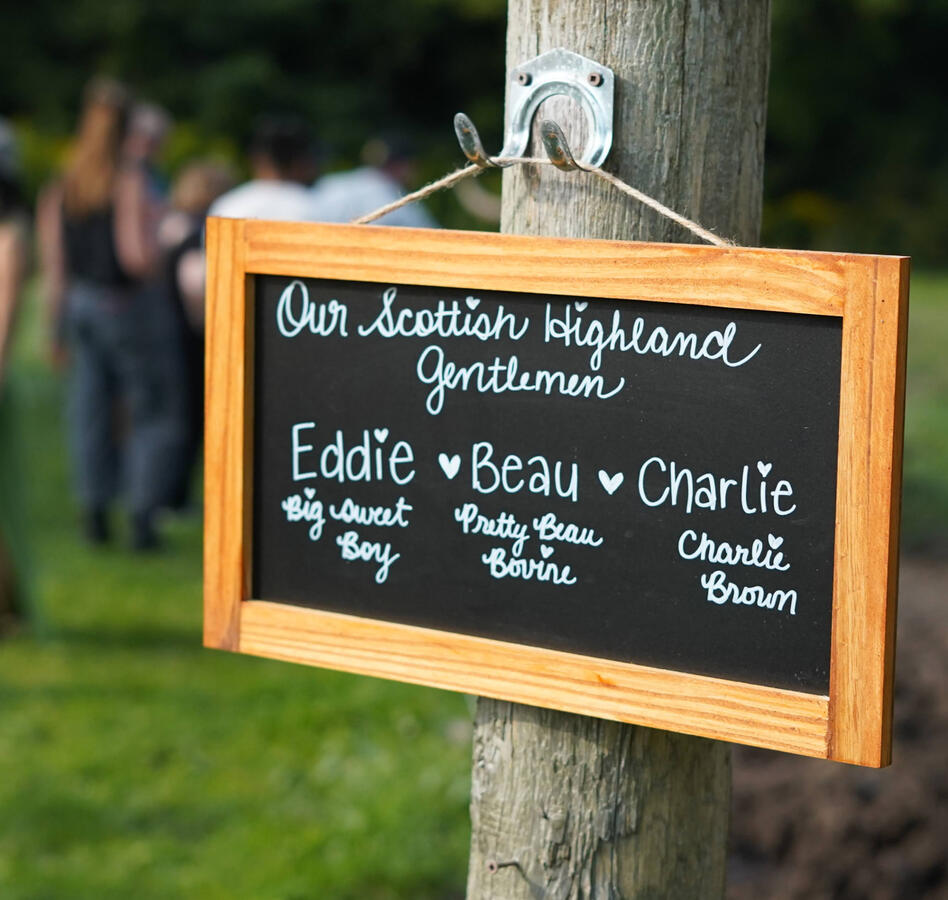 Our Scottish Highland
Gentlemen
Eddie ♥ Beau ♥ Charlie
Big Sweet Pretty Beau Charlie
Boy Bovine Brown